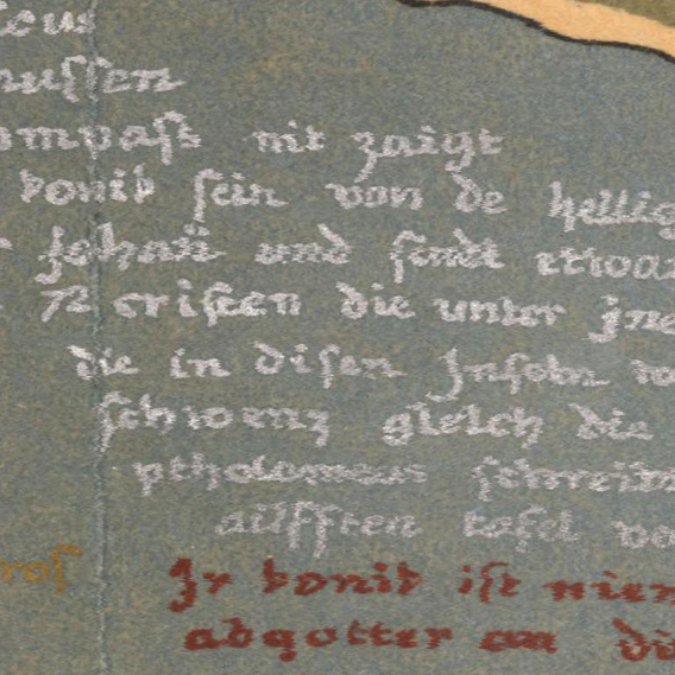 nussen
ompast nit zaigt
konib sein von de heilig
johañ und sindt etwaz
72 cristen die unter jne
die in disen Jnseln
schwenz gleich die
ptholomeus schreibt
ailfften tafel
Jr konib ist nien
abgotter an die